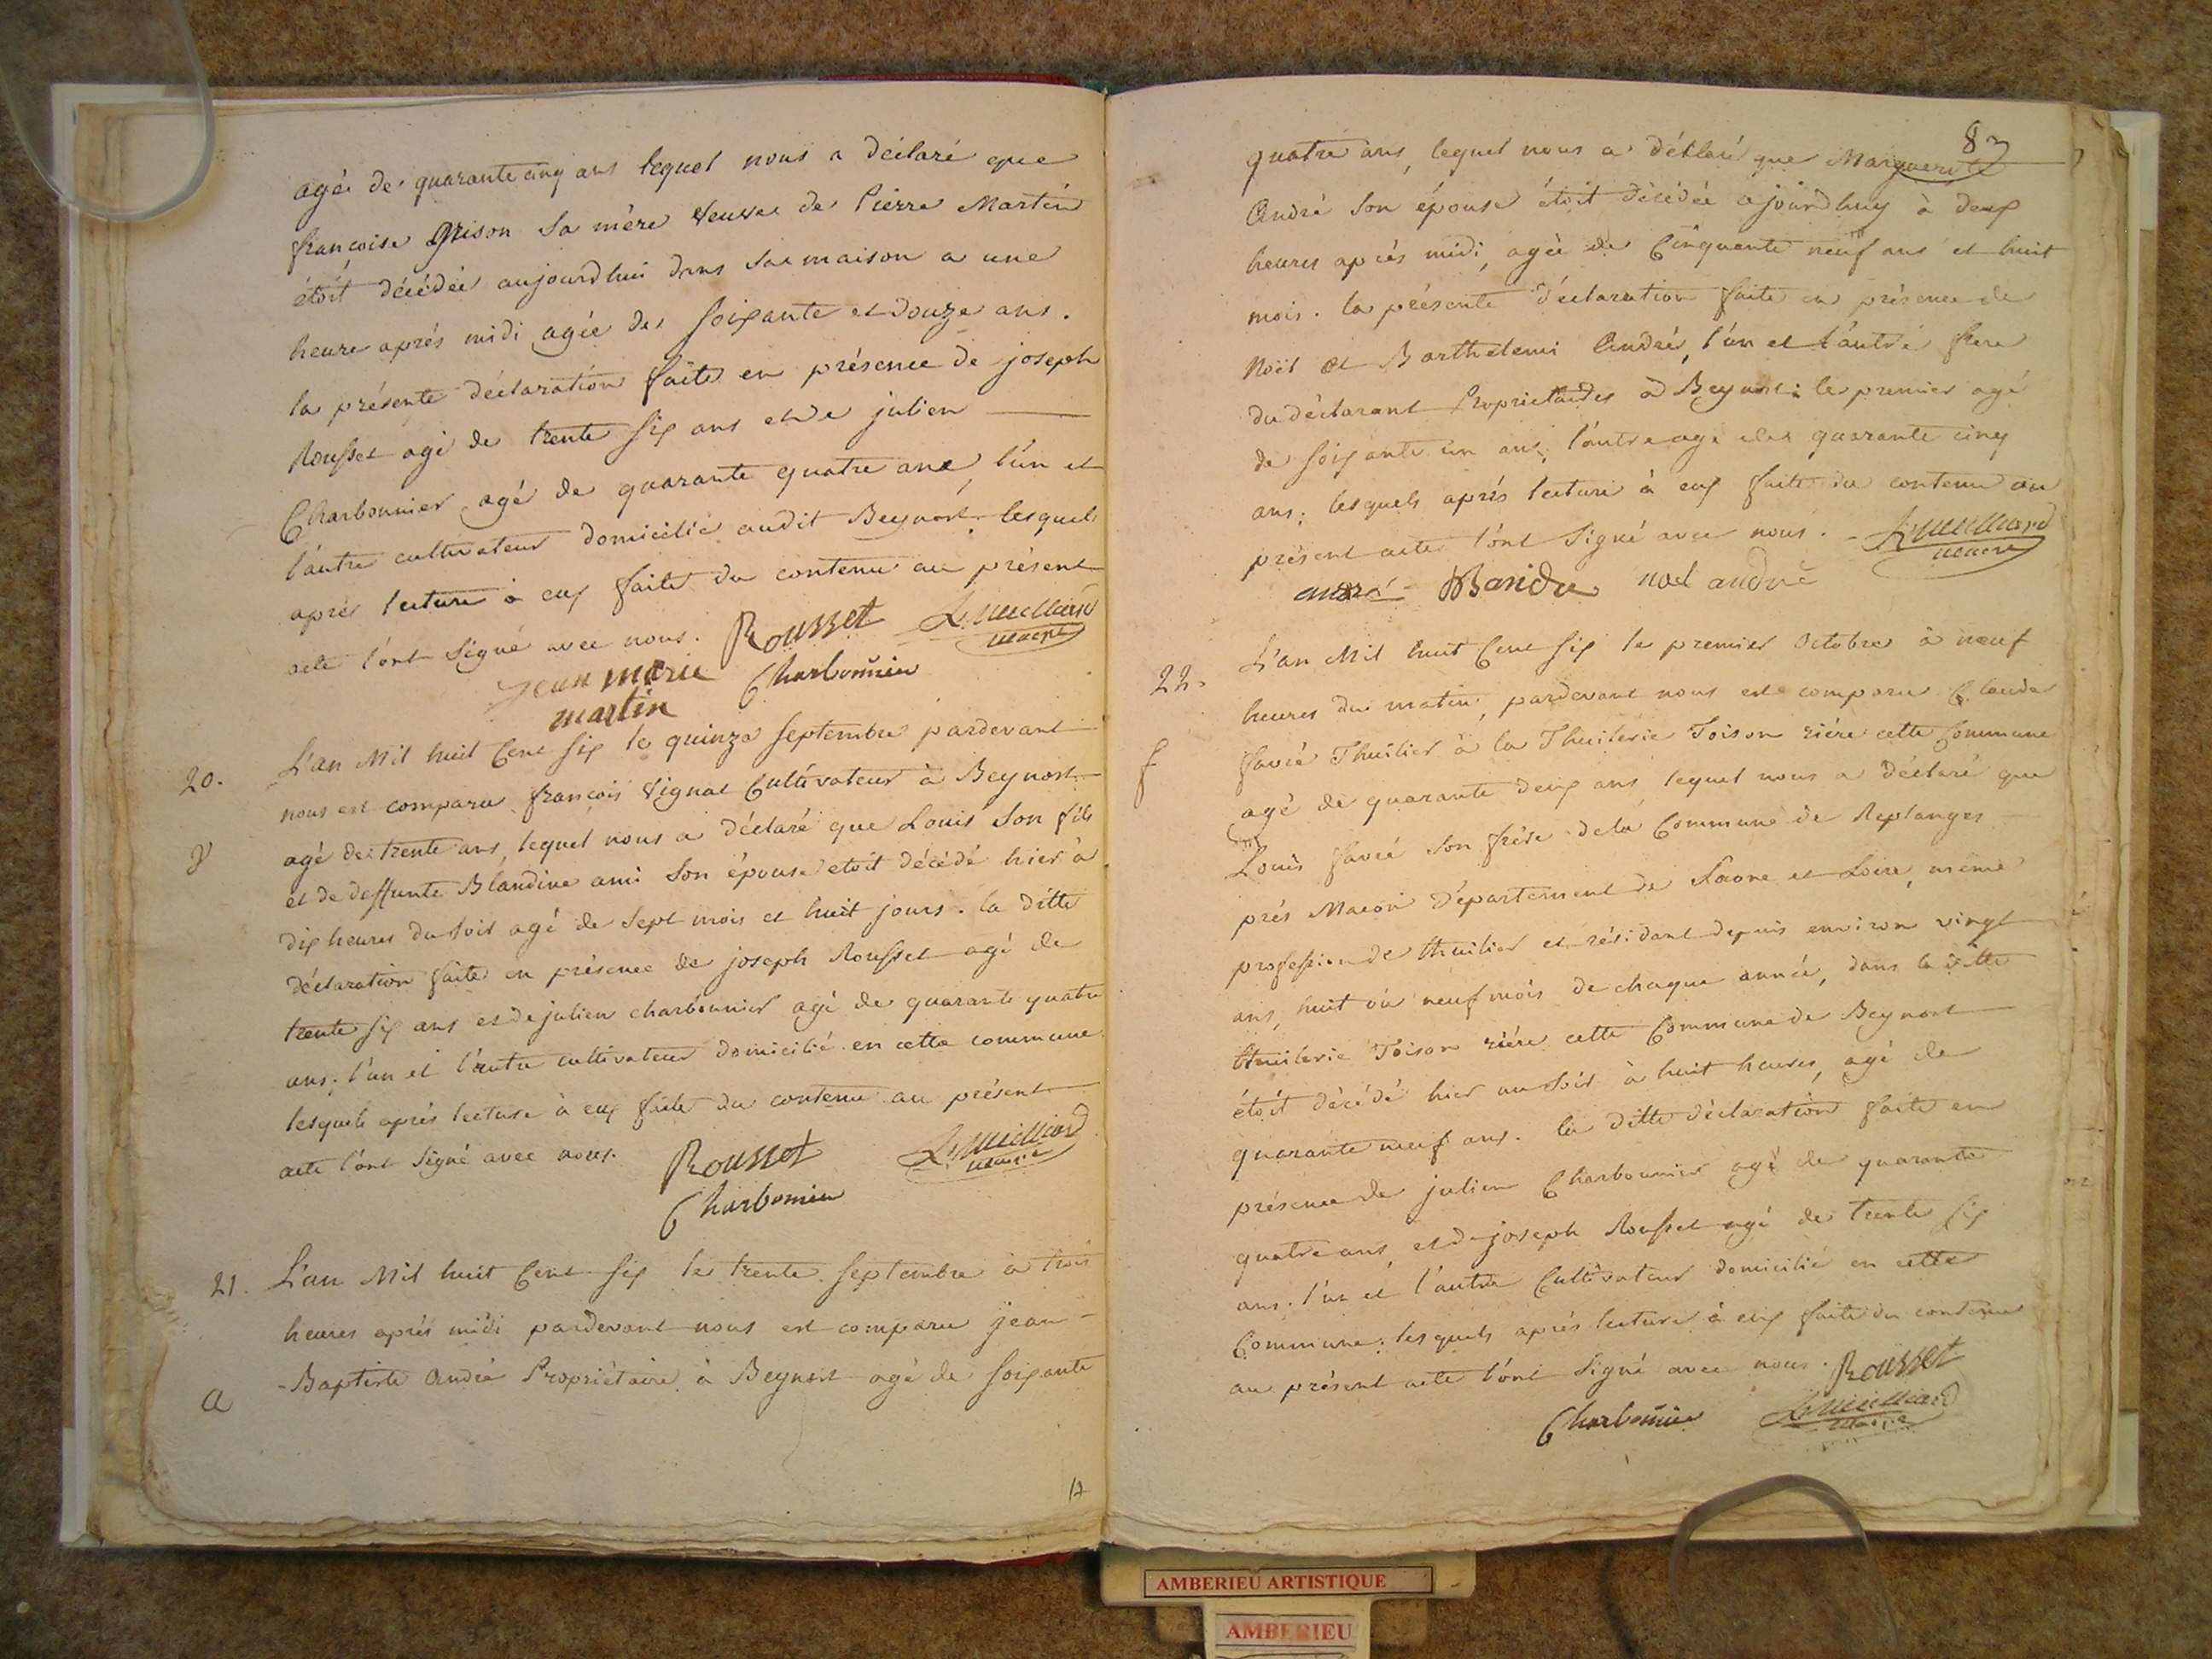 agée de quarante cinq ans lequel nous a déclaré que
françoise Grison sa mère veuve de Pierre Martin
étoit décédée aujourdhui dans sa maison a une
heure après midi agée de soixante et douze ans.
la présente déclaration faite en présence de joseph
Rousset agé de trente six ans et de julien
Charbonnier agé de quarante quatre ans, l'un et
l'autre cultivateur domicilié audit Beynost. lesquels
après lecture à eux faite du contenu au présent
acte l'ont signé avec nous. Rousset
maire
jean marie Charbonnier
martin
20. L'an Mil huit Cent six le quinze septembre pardevant
nous est comparu françois Vignat Cultivateur à Beynost
V agé de trente ans, lequel nous a déclaré que Louis son fils
et de deffunte Blandine ami son épouse etoit décédé hier à
dix heures du soir agé de sept mois et huit jours. la ditte
déclaration faite en présence de joseph Rousset agé de
trente six ans et de julien charbonnier agé de quarante quatre
ans; l'un et l'autre cultivateur domicilié en cette commune
lesquels après lecture à eux faite du contenu au présent
acte l'ont signé avec nous. Rousset
maire
Charbonnier
21. L'an Mil huit Cent six le trente septembre à trois
heures après midi pardevant nous est comparu jean
a -Baptiste André Propriétaire à Beynost agé de soixante
83
quatre ans, lequel nous a déclaré que Marguerite
André son épouse étoit décédée ajourdhuy à deux
heures après midi, agée de Cinquante neuf ans et huit
mois. la présente déclaration faite en présence de
Noël et Barthelemi André, l'un et l'autre frere
du déclarant Proprietaires à Beynost; le premier agé
de soixante un ans, l'autre agé de quarante cinq
ans; lesquels après lecture à eux faite du contenu au
présent acte l'ont signé avec nous.
maire
andré noel andré
22. L'an Mil huit Cent six le premier Octobre à neuf
heures du matin, pardevant nous est comparu Claude
f favre Thuilier à la Thuilerie Toison rière cette Commune
agé de quarante deux ans, lequel nous a déclaré que
Louis favre son frère de la Commune de Replanges
près Macon Département de Saone et Loire, même
profession de thuilier et résidant depuis environ vingt
ans, huit ou neuf mois de chaque année, dans la ditte
thuilerie Toison rière cette Commune de Beynost
étoit décédé hier au soir à huit heures, agé de
quarante neuf ans. la ditte déclaration faite en
présence de julien Charbonnier agé de quarante
quatre ans, et de joseph Rousset agé de trente six
ans. l'un et l'autre Cultivateur domicilié en cette
Commune; lesquels après lecture à eux faite du contenu
au présent acte l'ont signé avec nous. Rousset
Charbonnier
maire
AMBERIEU ARTISTIQUE
AMBERIEU